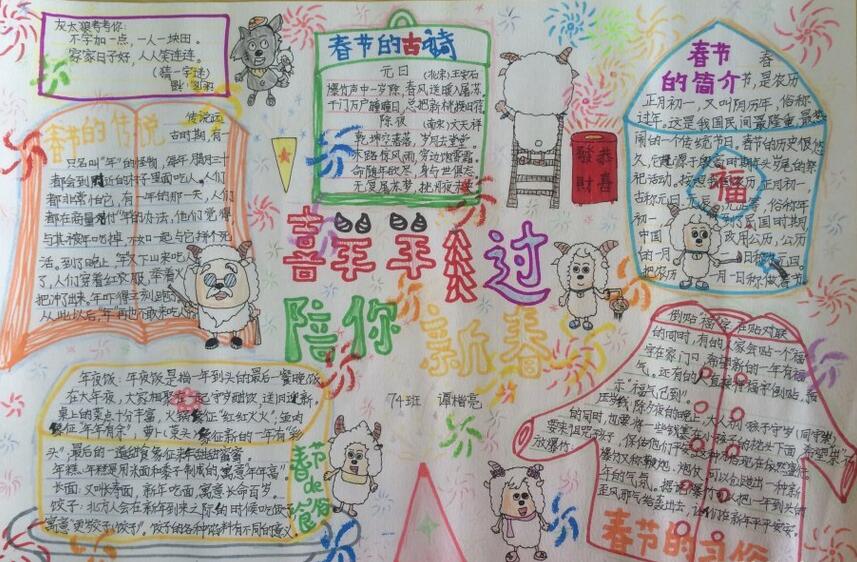 灰太狼考考你:
不字加一点,人一人一块田。
家家日子好,人人笑连连。
(猜一字谜)
春节的古诗
元日 (北宋)王安石
爆竹声中一岁除,春风送暖入屠苏。
千门万户曈曈日,总把新桃换旧符
除夜 (南宋)文天祥
乾坤空落落,岁月去堂堂。
末路惊风雨,穷边饱雪霜。
命随年欲尽,身与世俱忘
无复屠苏梦,挑灯夜未央
恭喜
發財
春节
的简介
春
节,是农历
正月初一,又叫阴历年,俗称
过年。这是我国民间最隆重,最热
闹的一个传统节日。春节的历史很悠
久,它起源于殷商时期
祀活动。
古称元日、
初一
中国 改用公历,公历
的一月 日称元旦。
把农历 一月一日称做春节
福
春节的传说
传说远
古时期,有一
只名叫"年"的怪物,每年腊月三十
都会到附近的村子里面吃人。人们
都非常怕它,有一年的那一天,人们
都在商量对付年的办法,他们觉得
与其被年吃掉,不如一起与它拼个死
活。到了晚上,年又下山来吃
了,人们穿着红衣服,拿着火
把冲出来,年吓得立刻
从此以后,年再也不敢来吃人
喜羊羊
过
陪你
新春
74班
年夜饭:年夜饭是指一年到头的最后一餐晚饭
在大年夜,大家相聚在一起守岁酣饮,送旧迎新。
桌上的菜点十分丰富,火锅象征"红红火火",鱼肉
象征"年年有余",萝卜(菜头)象征新的一年有"彩
头",最后的一道甜食象征来年甜甜蜜蜜
年糕:年糕是用米面和枣子制成的,寓意"年年高"。
长面:又叫长寿面,新年吃面,寓意长命百岁。
饺子:北方人会在新年到来之际的时候吃饺子
寓意"更岁交子(饺子)"。饺子的各种馅料有不同的意义。
春节de食俗
倒贴"福"字:在贴对联
的同时,有的人家会贴一个福
字在家门口,希望新的一年有福
气。还有的人直接将福字倒贴,表
示"福气已到"。
压岁钱:除夕夜的晚上,大人 孩子守岁(同守岁)
的同时,也要将一些钱塞在小孩子的枕头下面,希望
保佑他们平安
放爆竹:爆竹又称鞭炮,炮仗,可以创造出一种新
年的气氛。
歪风邪气给轰出去,让他们在新年平平安安。
春节的习俗